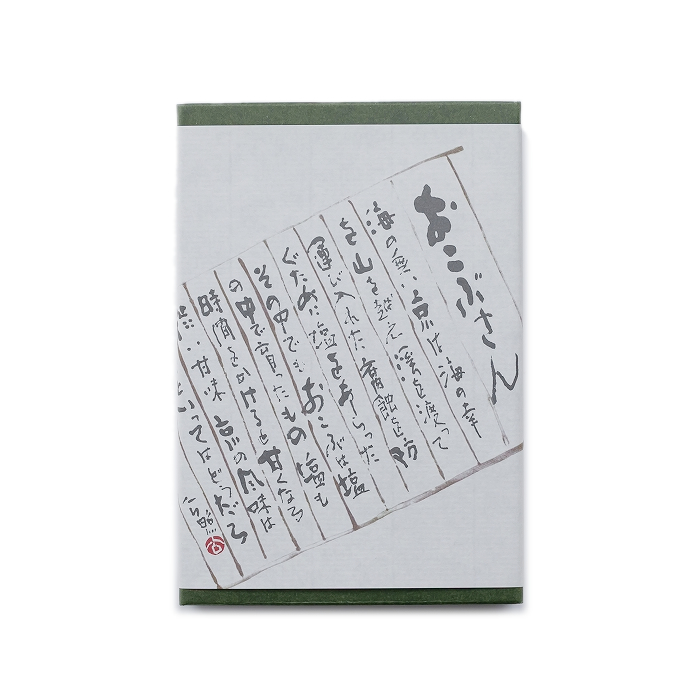 おこぶさん
海の無い京は海の幸
を山を越え渓を渡って
運び入れた腐蝕を防
ぐために塩を希らった
その中でもおこぶは塩
の中で育ったもの塩も
時間をかけると甘くなる
渋い甘味 京の風味は
いってはどうだろ